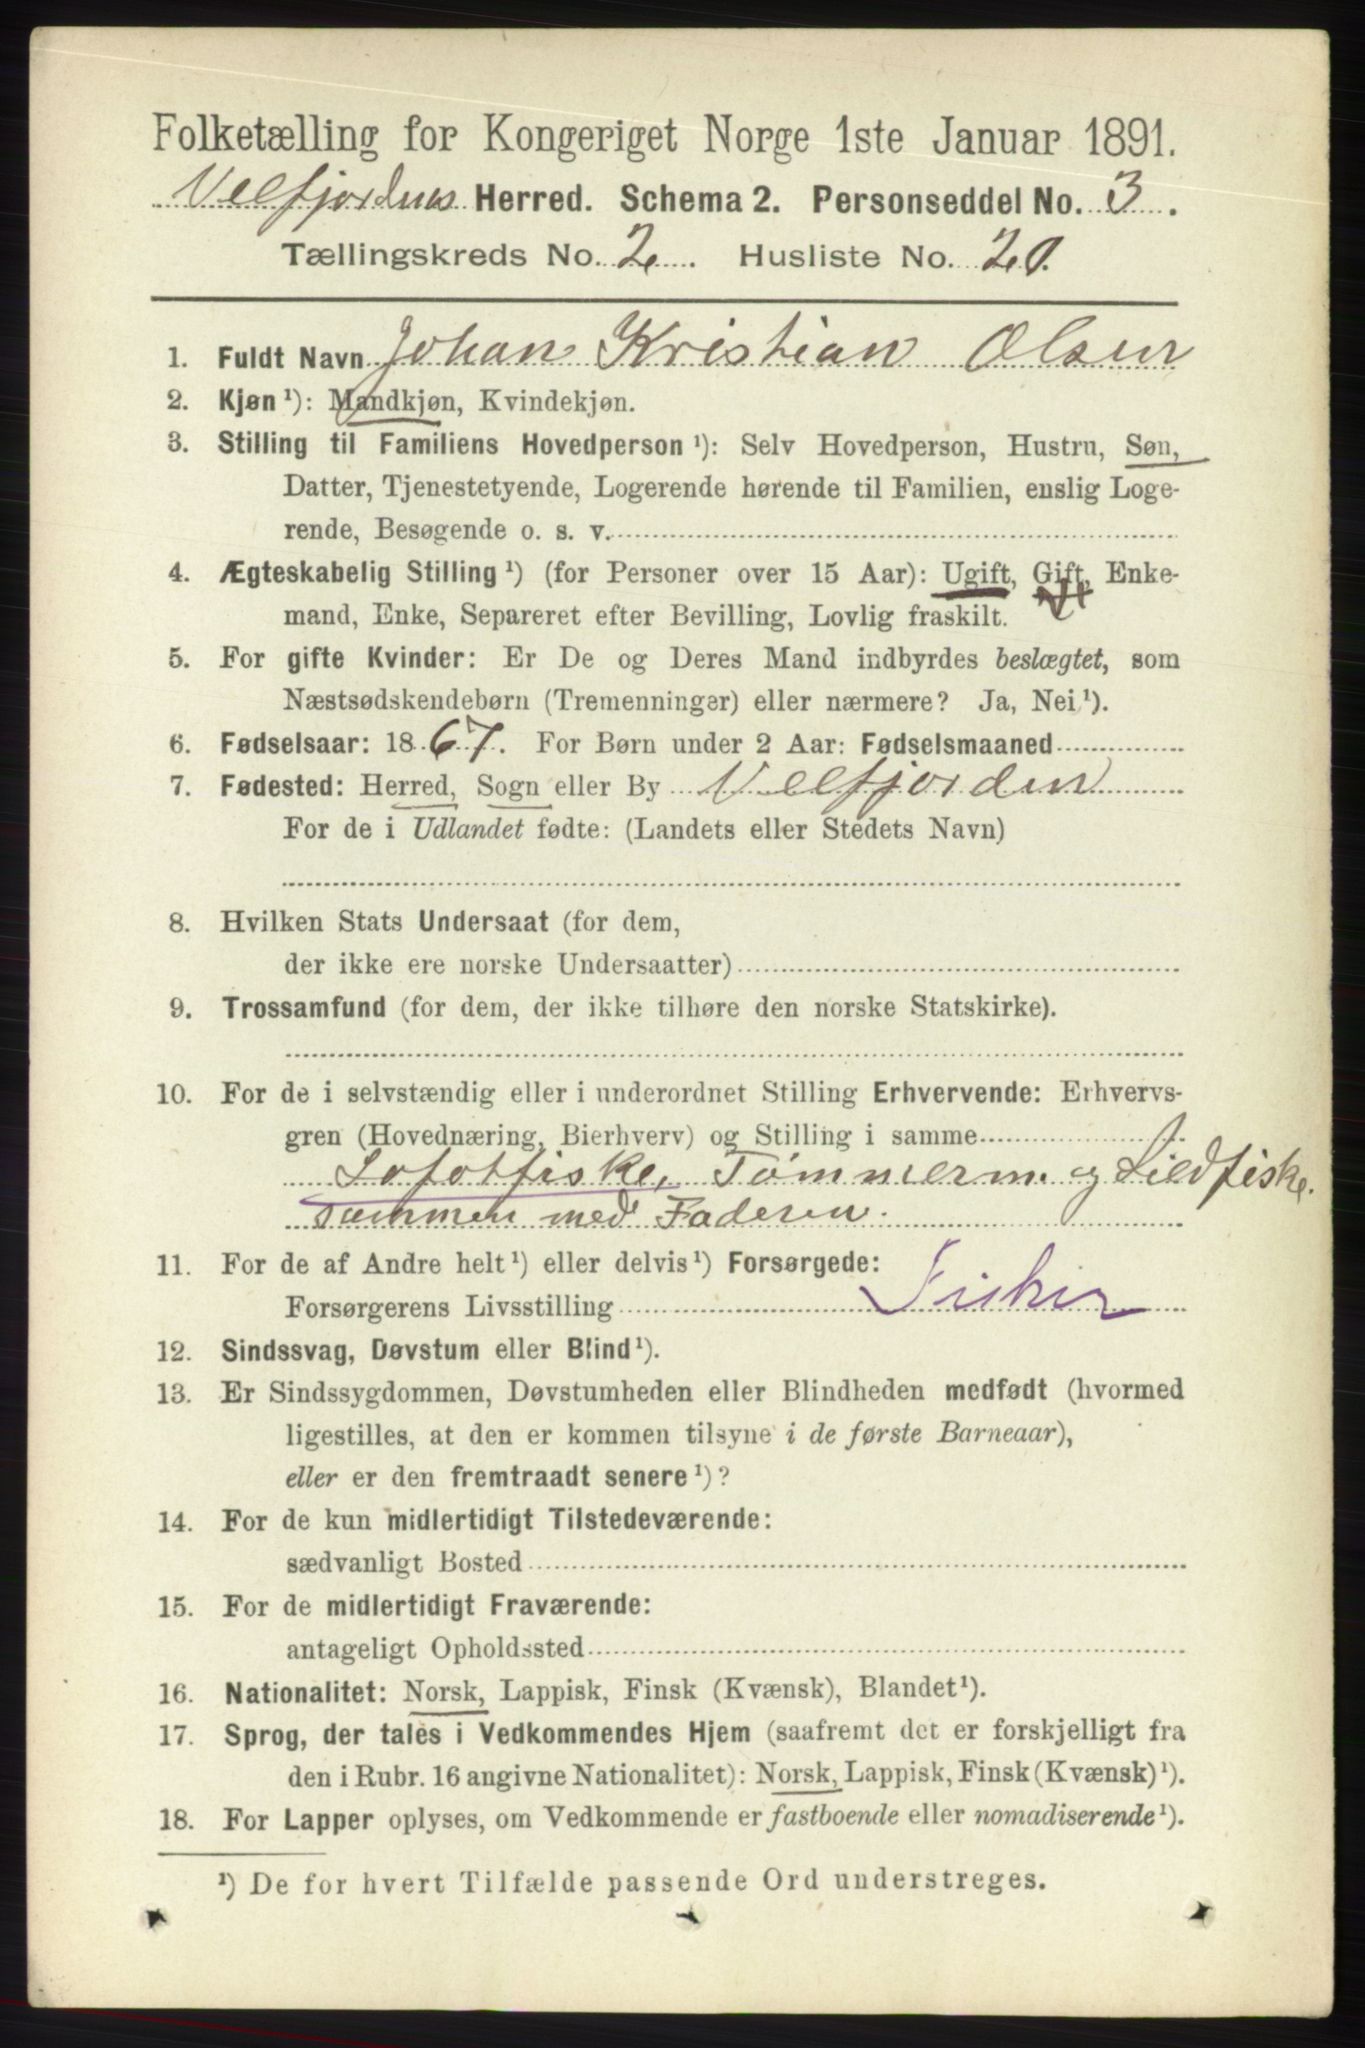 Folketælling for Kongeriget Norge 1ste Januar 1891.
Velfjordens Herred. Schema 2. Personseddel No. 3.
Tællingskreds No. 2. Husliste No. 20.
1. Fuldt Navn Johan Kristian Olsen
2. Kjøn ¹): Mandkjøn, Kvindekjøn.
3. Stilling til Familiens Hovedperson ¹): Selv Hovedperson, Hustru, Søn,
Datter, Tjenestetyende, Logerende hørende til Familien, enslig Loge-
rende, Besøgende o. s. v.
4. Ægteskabelig Stilling ¹) (for Personer over 15 Aar): Ugift, Gift, Enke-
mand, Enke, Separeret efter Bevilling, Lovlig fraskilt.
5. For gifte Kvinder: Er De og Deres Mand indbyrdes beslægtet, som
Næstsødskendebørn (Tremenninger) eller nærmere? Ja, Nei ¹).
6. Fødselsaar: 1867. For Børn under 2 Aar: Fødselsmaaned
7. Fødested: Herred, Sogn eller By Velfjorden
For de i Udlandet fødte: (Landets eller Stedets Navn)
8. Hvilken Stats Undersaat (for dem,
der ikke ere norske Undersaatter)
9. Trossamfund (for dem, der ikke tilhøre den norske Statskirke).
10. For de i selvstændig eller i underordnet Stilling Erhvervende: Erhvervs-
gren (Hovednæring, Bierhverv) og Stilling i samme
Lofotfiske, Tømmerm. og Sildfiske.
sammen med Faderen.
11. For de af Andre helt ¹) eller delvis ¹) Forsørgede:
Forsørgerens Livsstilling Fisker
12. Sindssvag, Døvstum eller Blind ¹).
13. Er Sindssygdommen, Døvstumheden eller Blindheden medfødt (hvormed
ligestilles, at den er kommen tilsyne i de første Barneaar),
eller er den fremtraadt senere ¹)?
14. For de kun midlertidigt Tilstedeværende:
sædvanligt Bosted
15. For de midlertidigt Fraværende:
antageligt Opholdssted
16. Nationalitet: Norsk, Lappisk, Finsk (Kvænsk), Blandet ¹).
17. Sprog, der tales i Vedkommendes Hjem (saafremt det er forskjelligt fra
den i Rubr. 16 angivne Nationalitet): Norsk, Lappisk, Finsk (Kvænsk) ¹).
18. For Lapper oplyses, om Vedkommende er fastboende eller nomadiserende ¹).
¹) De for hvert Tilfælde passende Ord understreges.